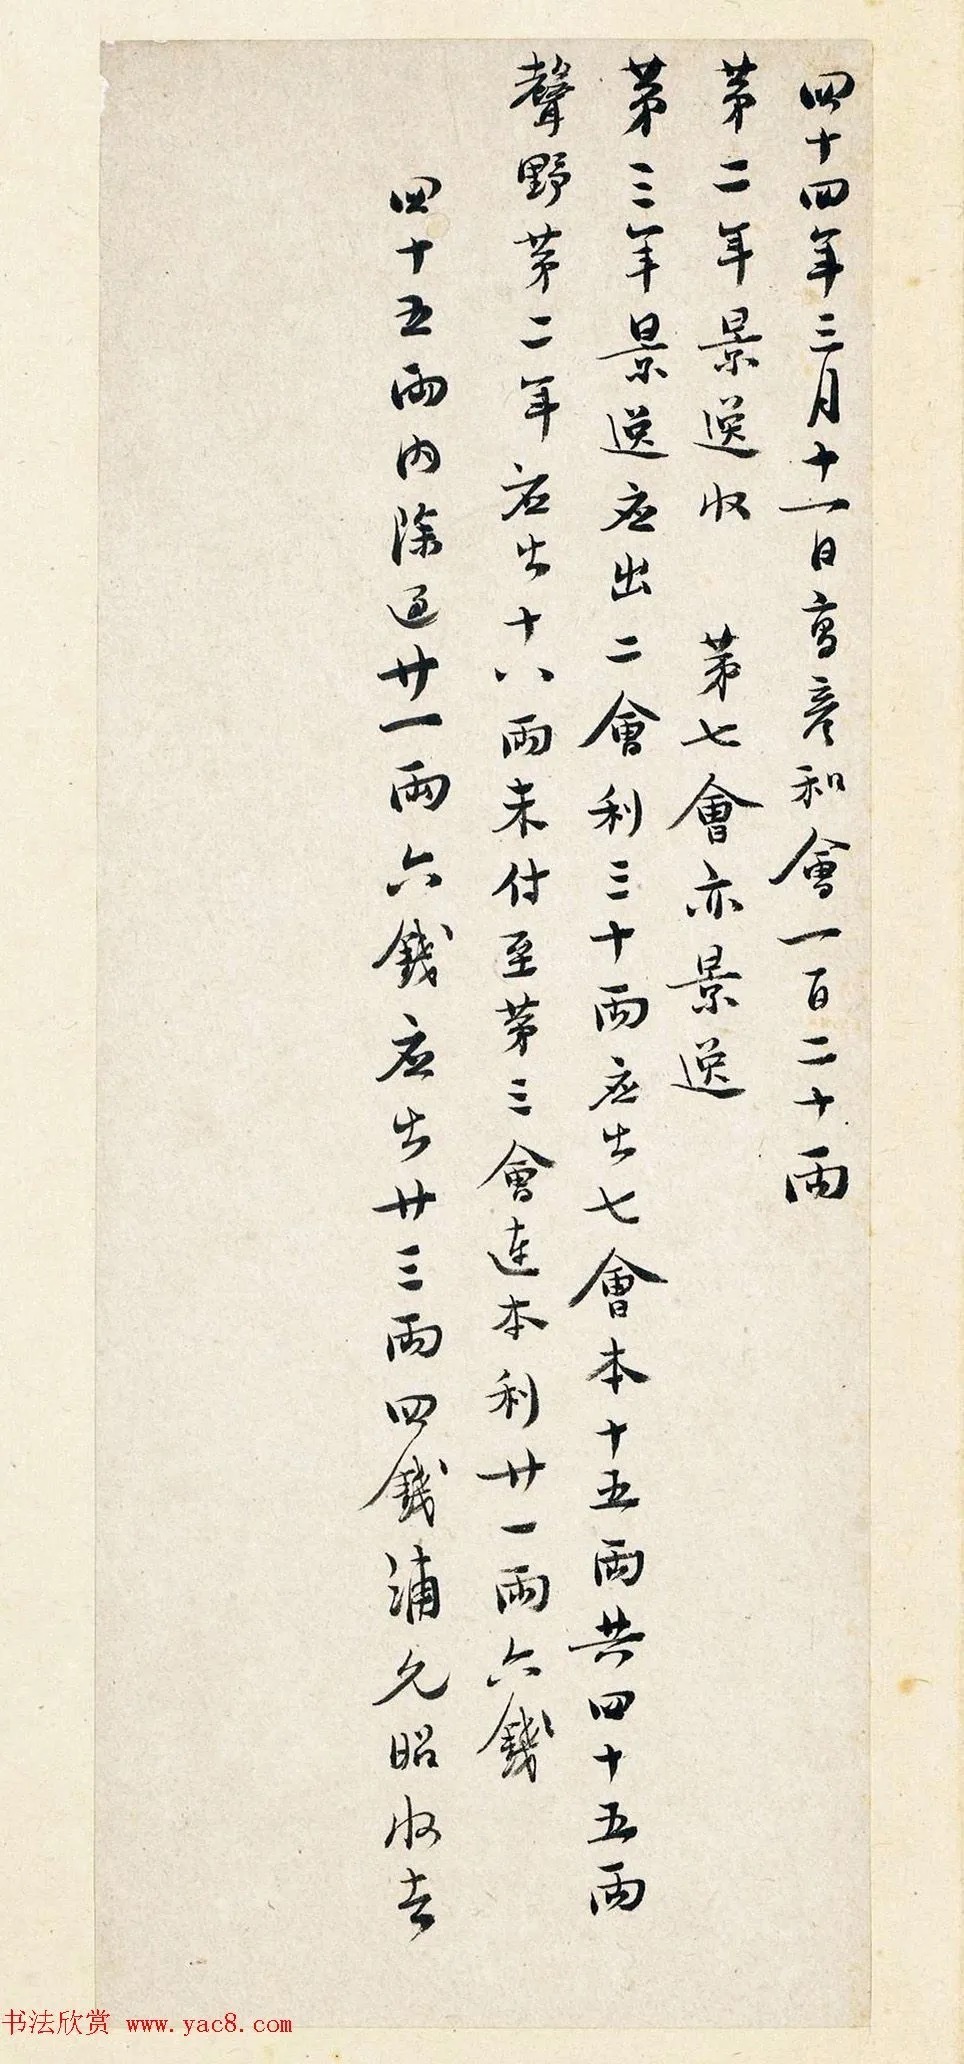 四十四年三月十一日高彥和會一百二十兩
第二年景送收 第七會亦景送
第三年景送应出二會利三十兩应出七會本十五兩共四十五兩
聲野第二年应出十八兩未付至第三會連本利廿一兩六錢
四十五兩內除還廿一兩六錢应出廿三兩四錢浦允昭收去
书法欣赏 www.yac8.com